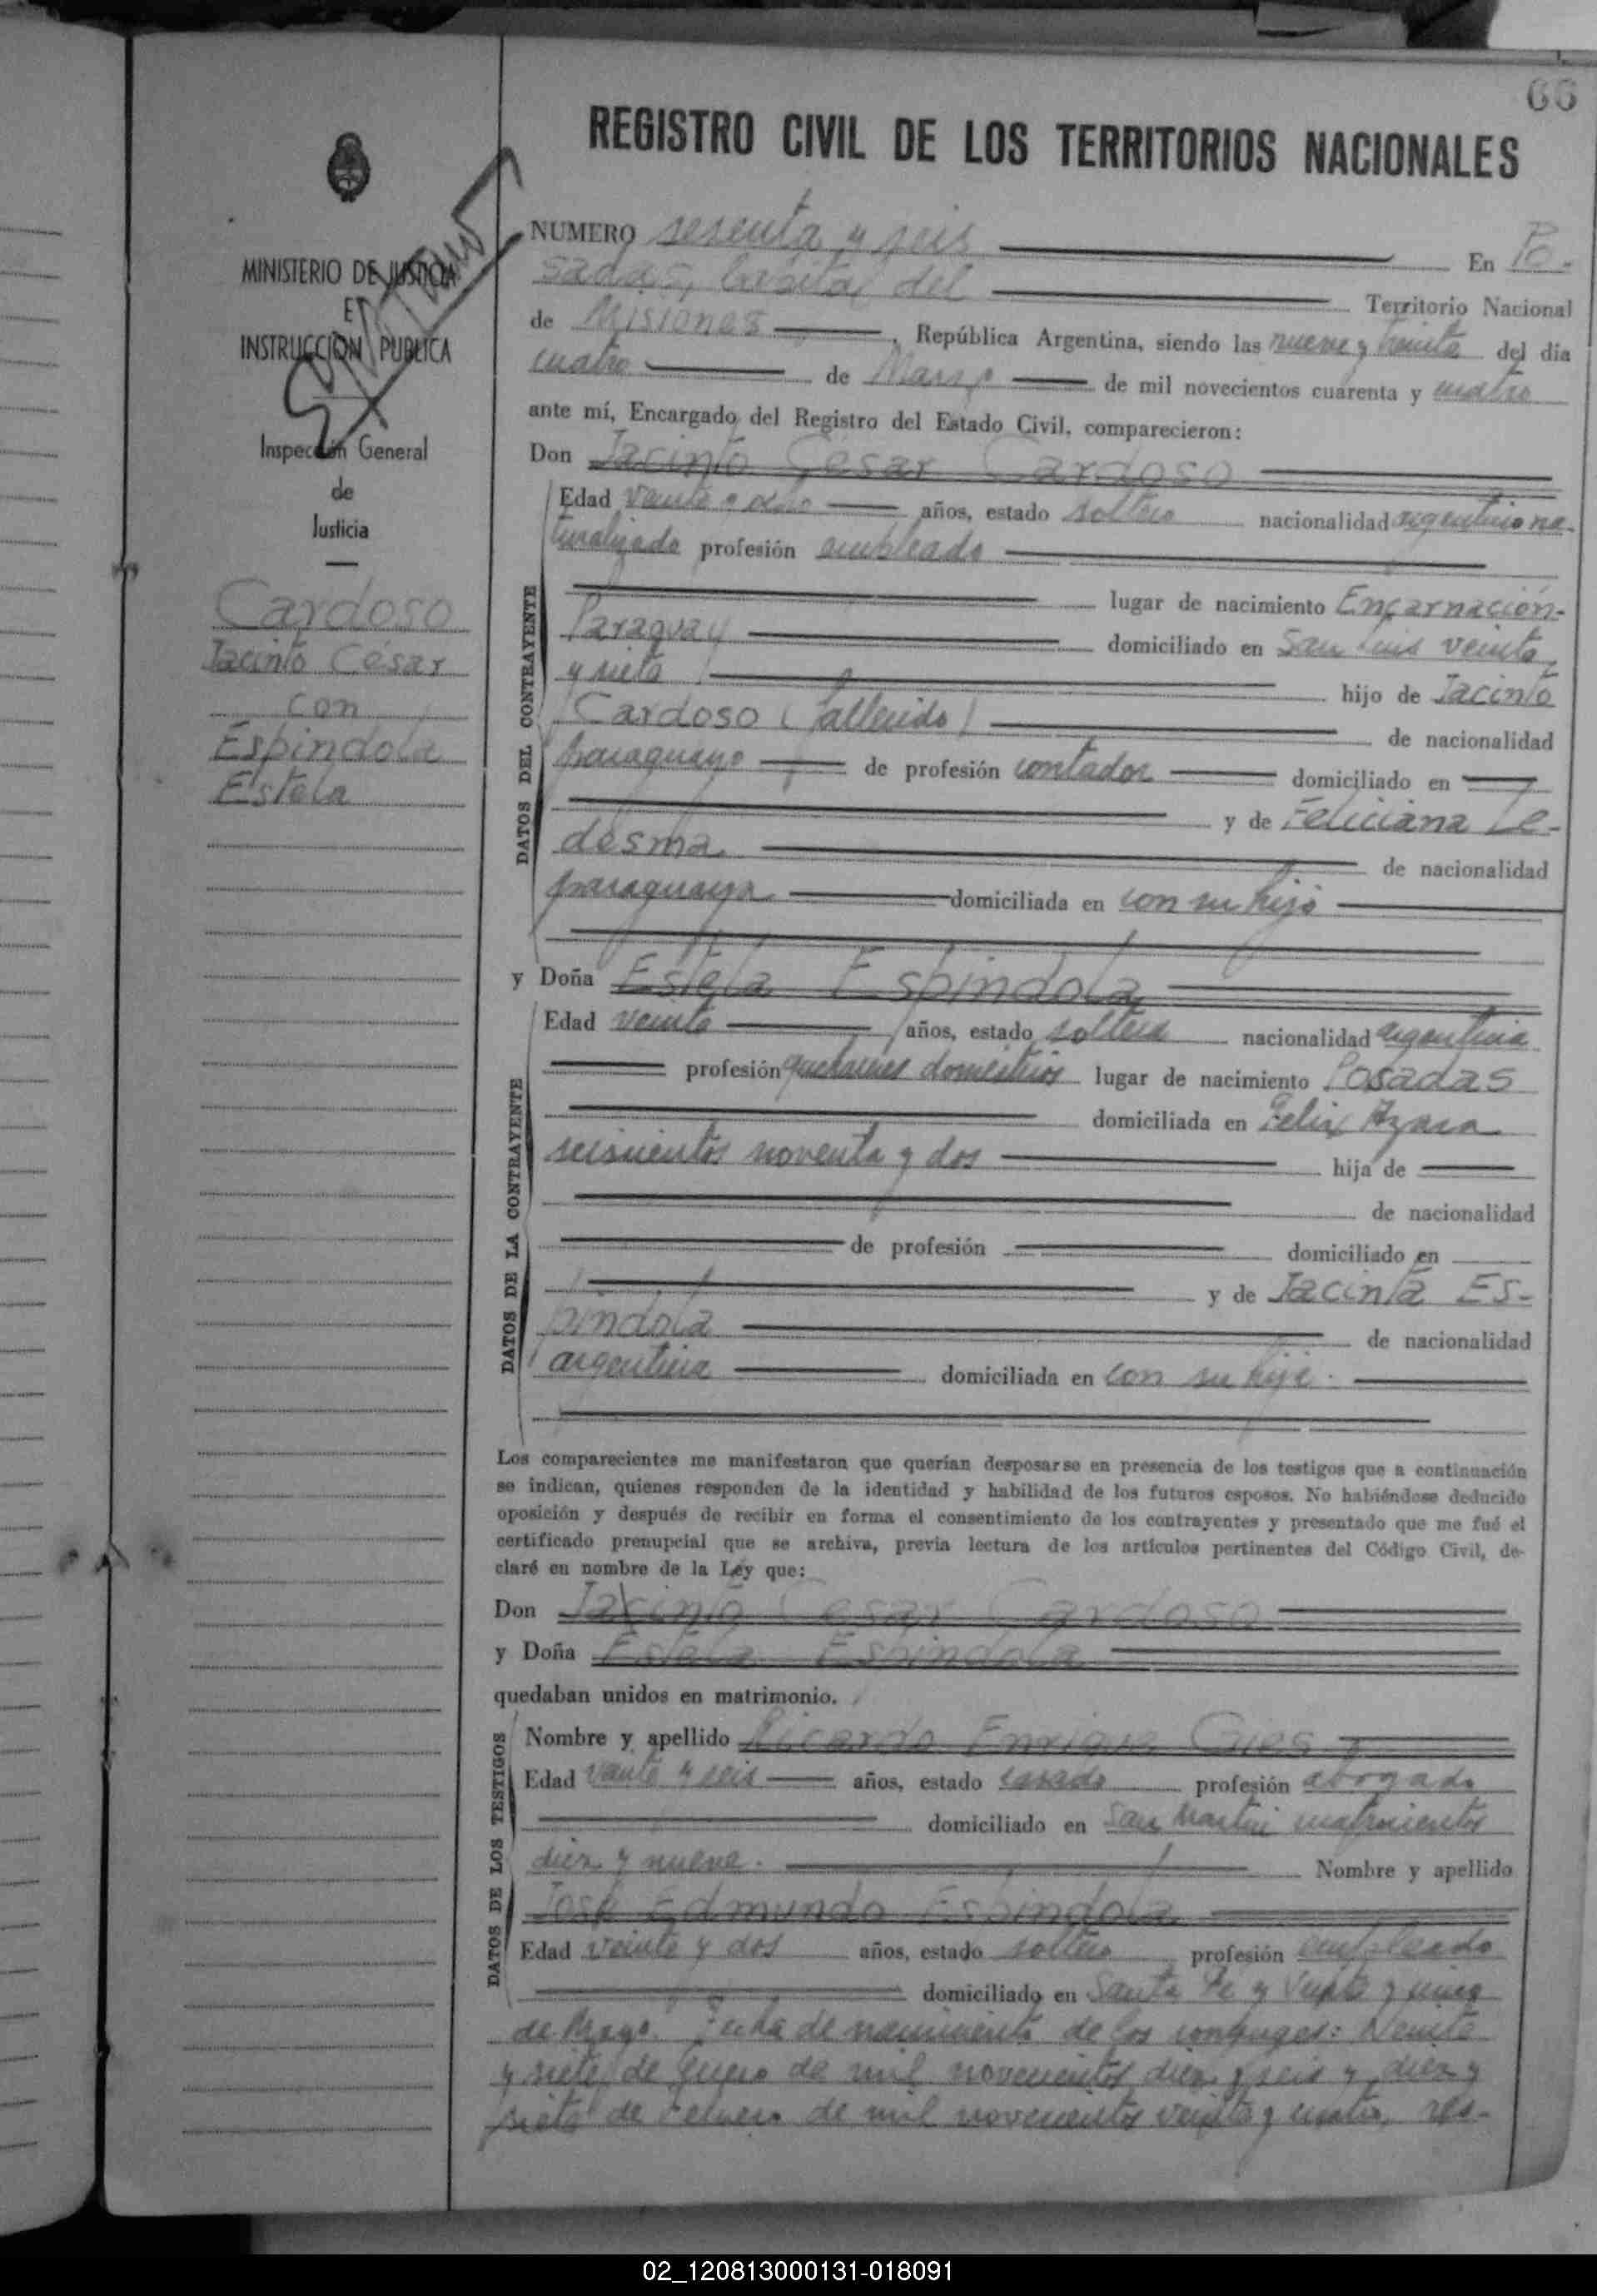 66
REGISTRO CIVIL DE LOS TERRITORIOS NACIONALES
MINISTERIO DE JUSTICIA
E
INSTRUCCION PUBLICA
Inspección General
de
Justicia
Cardoso
Jacinto César
con
Espindola
Estela
NUMERO sesenta y seis En Po-
sadas, Capital del Territorio Nacional
de Misiones, República Argentina, siendo las nueve y treinta del día
cuatro de Marzo de mil novecientos cuarenta y cuatro
ante mí, Encargado del Registro del Estado Civil, comparecieron:
Don Jacinto César Cardoso
Edad veinte y ocho años, estado soltero nacionalidad argentino na-
turalizado profesión empleado
lugar de nacimiento Encarnación-
Paraguay domiciliado en San Luis veinte
y siete hijo de Jacinto
Cardoso (fallecido) de nacionalidad
paraguayo de profesión contador domiciliado en
y de Feliciana Le-
desma de nacionalidad
paraguaya domiciliada en con su hijo
DATOS DEL CONTRAYENTE
y Doña Estela Espindola
Edad veinte años, estado soltera nacionalidad argentina
profesión quehaceres domésticos lugar de nacimiento Posadas
domiciliada en Felix Azara
seiscientos noventa y dos hija de
de nacionalidad
de profesión domiciliado en
y de Jacinta Es-
pindola de nacionalidad
argentina domiciliada en con su hija.
DATOS DE LA CONTRAYENTE
Los comparecientes me manifestaron que querían desposarse en presencia de los testigos que a continuación
se indican, quienes responden de la identidad y habilidad de los futuros esposos. No habiéndose deducido
oposición y después de recibir en forma el consentimiento de los contrayentes y presentado que me fué el
certificado prenupcial que se archiva, previa lectura de los artículos pertinentes del Código Civil, de-
claré en nombre de la Ley que:
Don Jacinto Cesar Cardoso
y Doña Estela Espindola
quedaban unidos en matrimonio.
Nombre y apellido Ricardo Enrique
Edad veinte y seis años, estado casado profesión abogado
domiciliado en San Martin cuatrocientos
diez y nueve. Nombre y apellido
José Edmundo Espindola
Edad veinte y dos años, estado soltero profesión empleado
domiciliado en Santa Fe y Veinte y cinco
DATOS DE LOS TESTIGOS
de Mayo. Fecha de nacimiento de los conyuges: Veinte
y siete de Enero de mil novecientos diez y seis y diez y
siete de Febrero de mil novecientos veinte y cuatro, res-
02_120813000131-018091